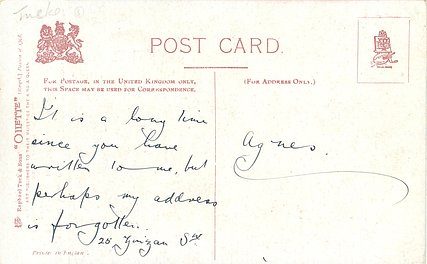 Tucks
POST CARD.
FOR POSTAGE, IN THE UNITED KINGDOM ONLY,
THIS SPACE MAY BE USED FOR CORRESPONDENCE.
(FOR ADDRESS ONLY.)
Raphael Tuck & Sons' "OILETTE"
It is a long time
since you have
written to me, but
perhaps my address
is forgotten.
25 St
Agnes.
PRINTED IN ENGLAND.